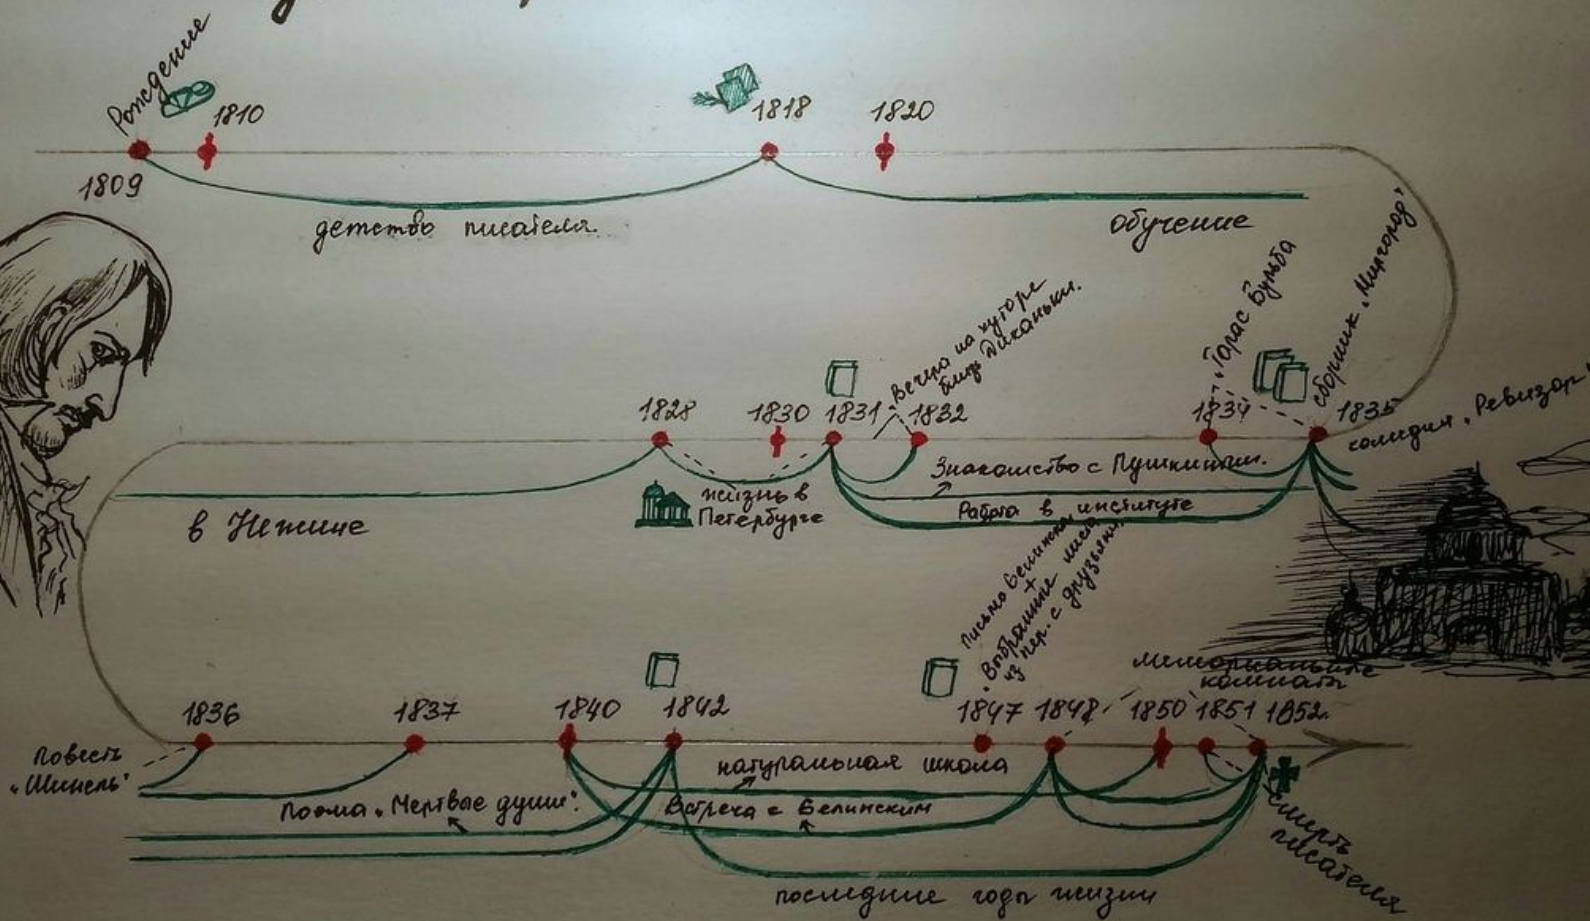 Рождение
1810
1818
1820
1809
детство писателя.
обучение
"Вечера на хуторе
близ Диканьки.
"Тарас Бульба
сборник "Миргород"
1828
1830
1831
1832
1834
1835
комедия "Ревизор"
Знакомство с Пушкиным.
жизнь в
Петербурге
Работа в институте
в Нежине
Письмо Белинскому
+
"Выбранные места
из пер. с друзьями
мемориальные
комнаты
1836
1837
1840
1842
1847
1848
1850
1851
1852.
повесть
"Шинель"
натуральная школа
Поэма "Мертвые души".
Встреча с Белинским
смерть
писателя
последние годы жизни